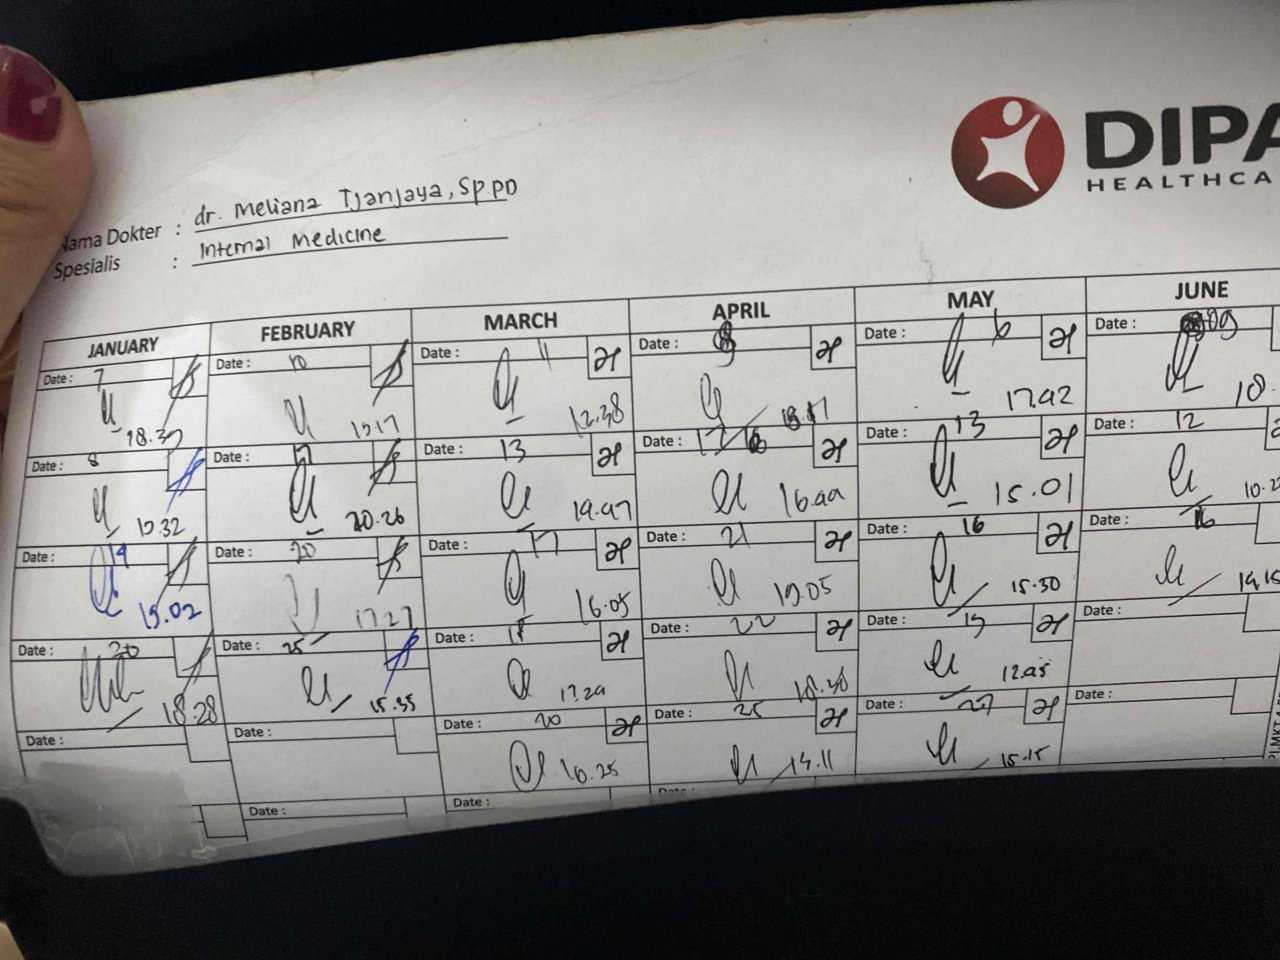 DIPA
HEALTHCA
Nama Dokter : dr. Meliana Tjanjaya, Sp.PD
Spesialis : Internal Medicine
JANUARY FEBRUARY MARCH APRIL MAY JUNE
Date : 7 Date : 10 Date : 11 Date : Date : 6 Date : 09
18.37 15.17 12.38 17.42 10.
Date : 8 Date : 17 Date : 13 Date : 17 Date : 13 Date : 12
10.32 20.26 19.47 16.44 15.01 10.2
Date : 14 Date : 20 Date : 17 Date : 21 Date : 16 Date : 16
15.02 17.27 16.05 19.05 15.30 14.15
Date : 20 Date : 25 Date : 18 Date : 22 Date : 19 Date :
18.28 15.35 17.29 18.30 12.45
Date : Date : Date : 20 Date : 25 Date : 27 Date :
10.25 14.11 15.15
Date : Date : Date :